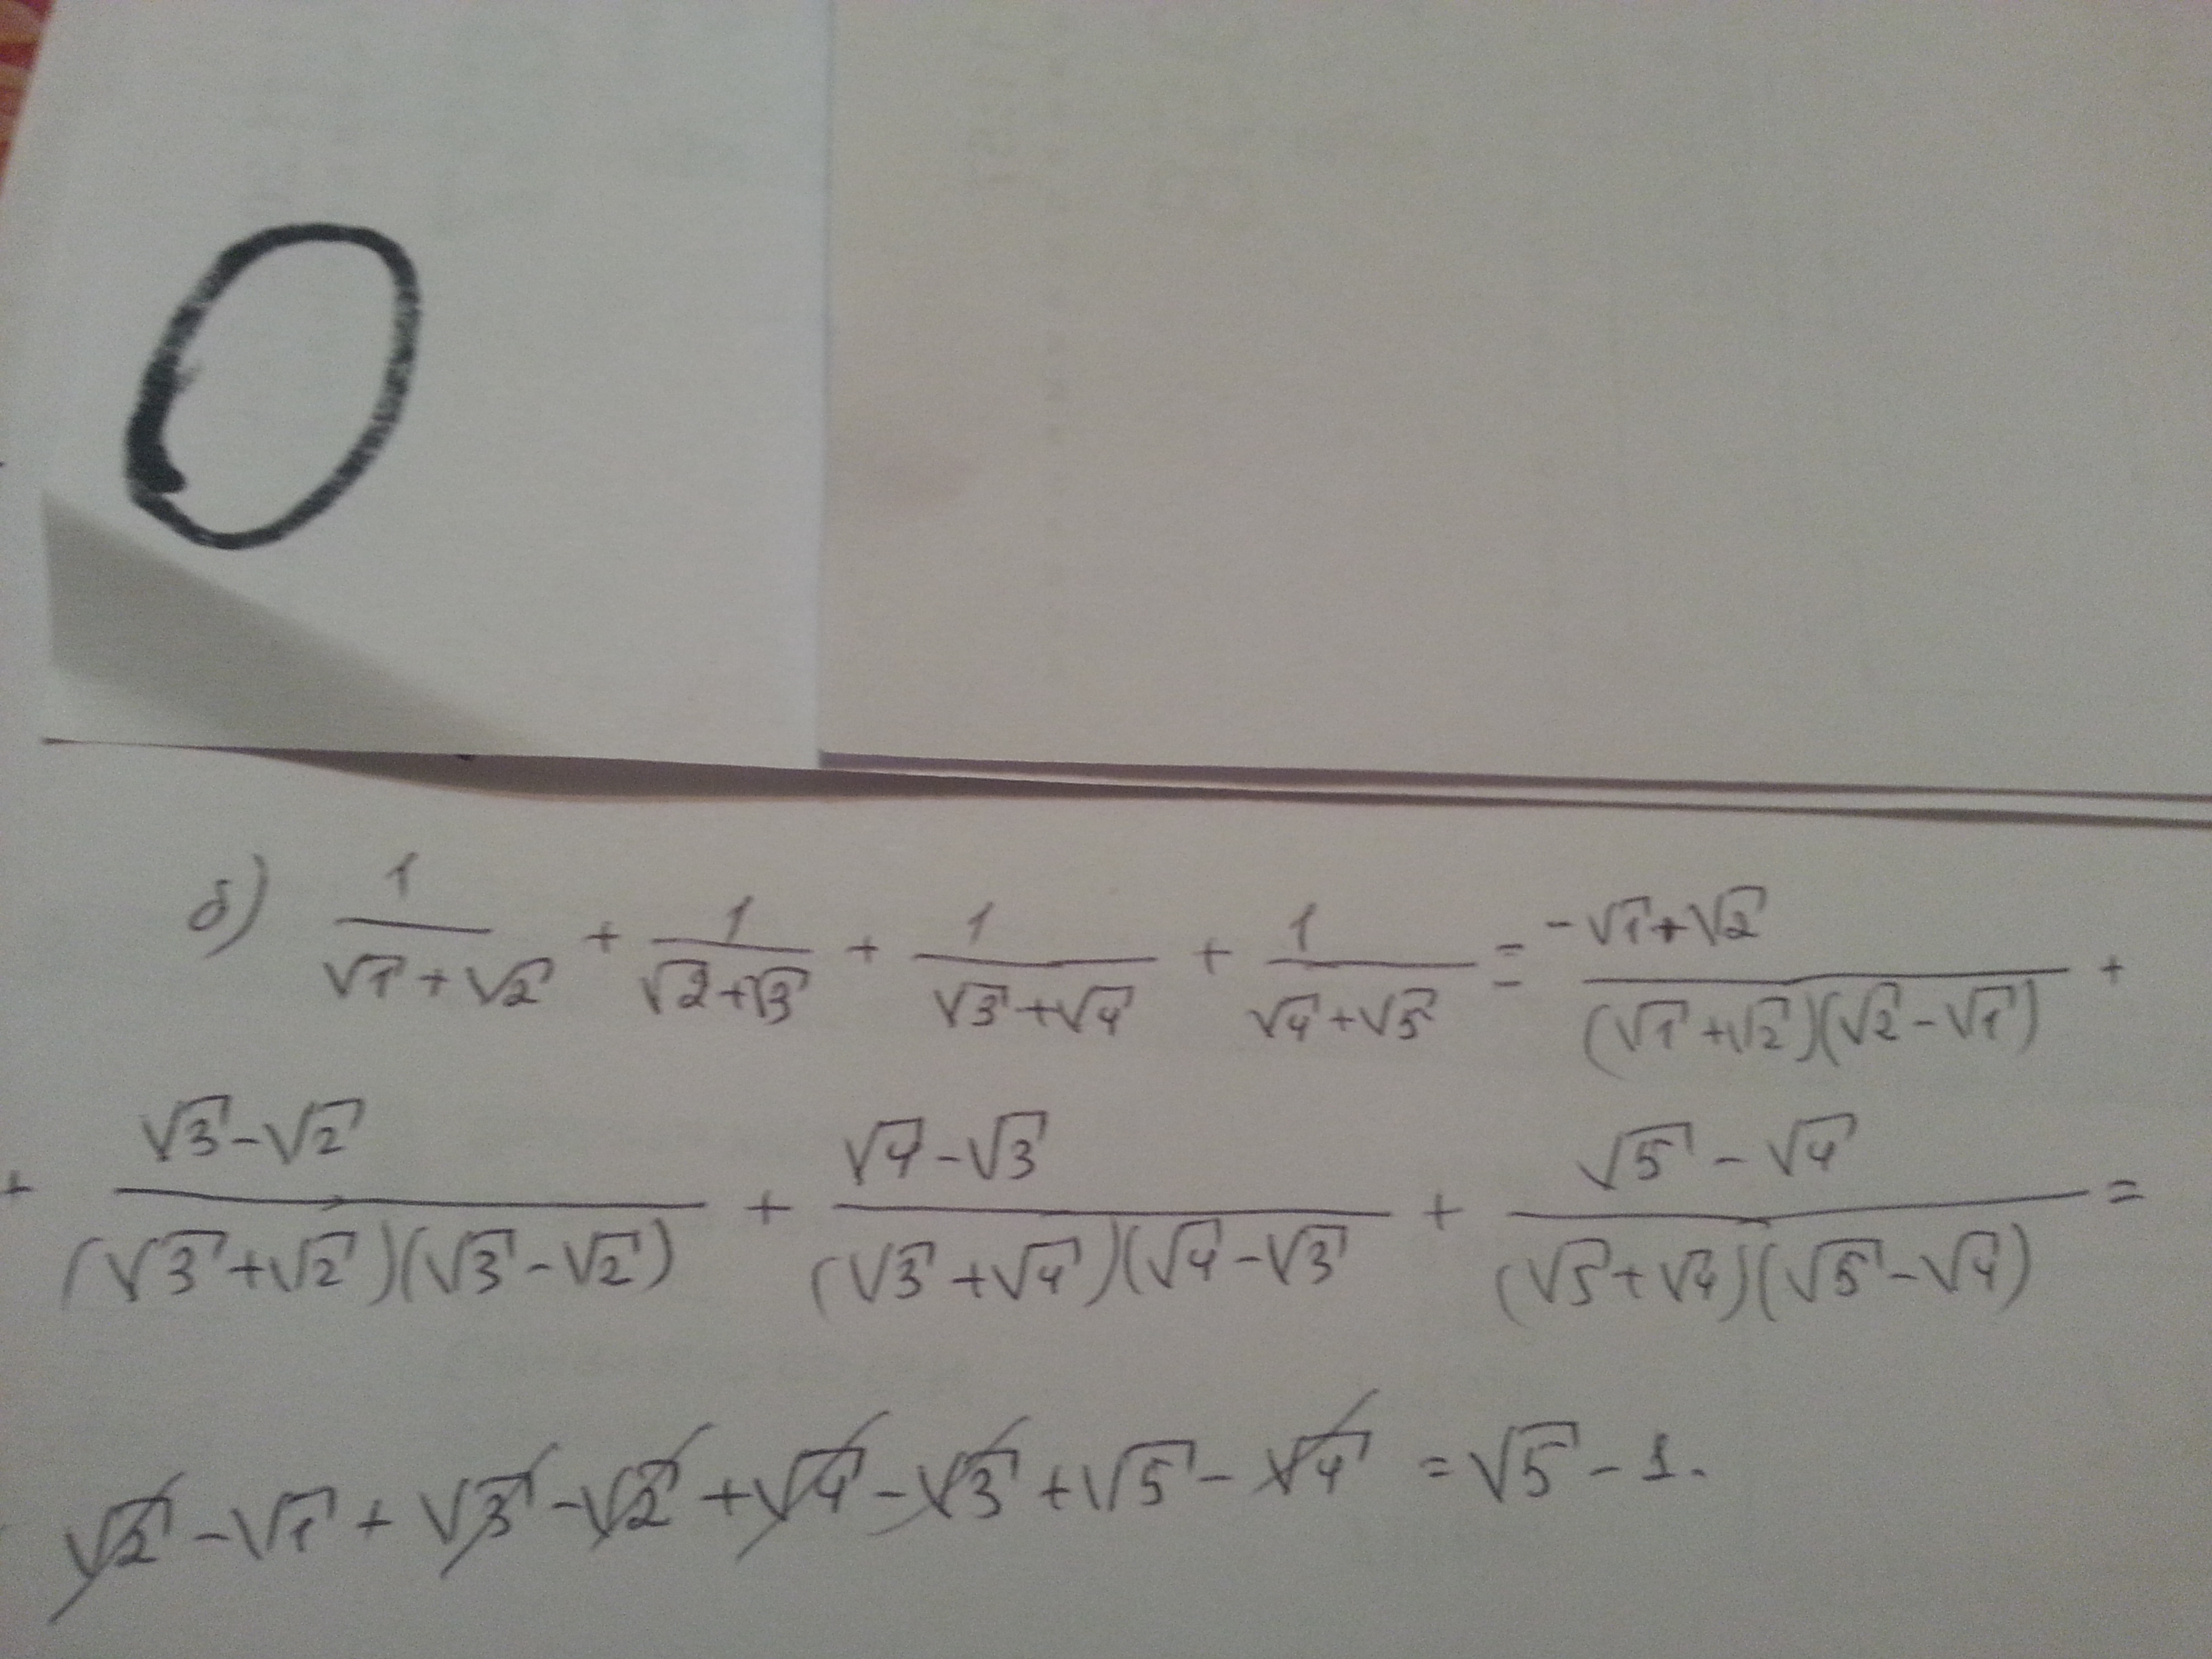 0
б) 1/(√1+√2) + 1/(√2+√3) + 1/(√3+√4) + 1/(√4+√5) = (-√1+√2)/((√1+√2)(√2-√1)) +
+ (√3-√2)/((√3+√2)(√3-√2)) + (√4-√3)/((√3+√4)(√4-√3) + (√5-√4)/((√5+√4)(√5-√4)) =
√2-√1+√3-√2+√4-√3+√5-√4 = √5-1.